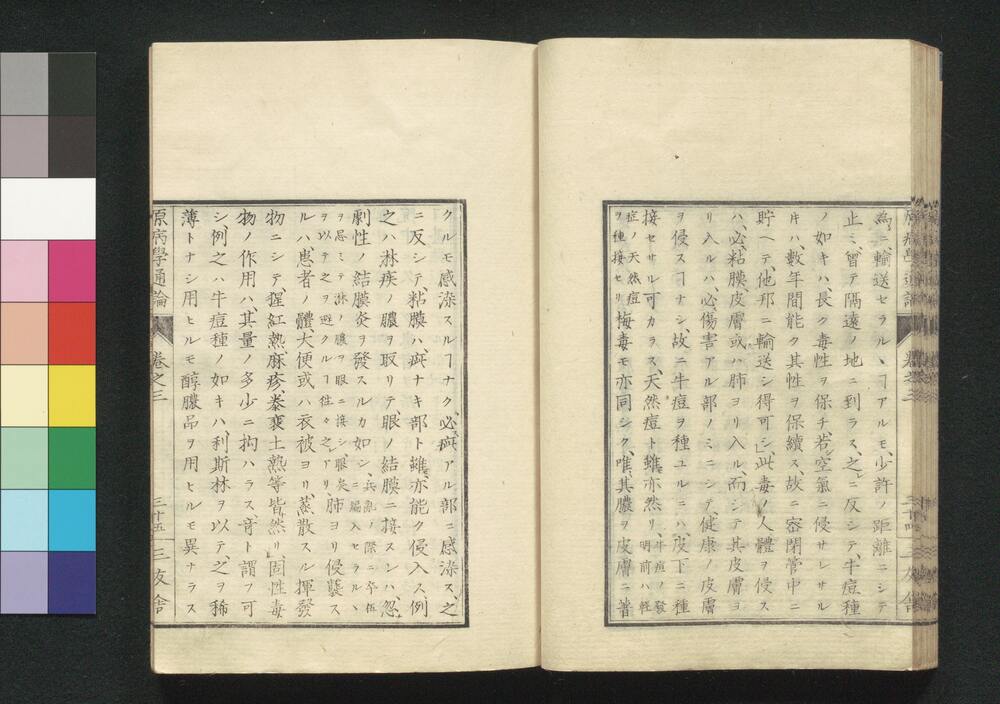 為ニ輸送セラルヽヿアルモ、少許ノ距離ニシテ
止ミ、曾テ隔遠ノ地ニ到ラス、之ニ反シテ、牛痘種
ノ如キハ、長ク毒性ヲ保チ、若シ空氣ニ侵サレサル
片ハ、數年間能ク其性ヲ保續ス、故ニ密閉管中ニ
貯ヘテ、他邦ニ輸送シ得可シ、此毒ノ人體ヲ侵ス
ハ、必粘膜皮膚或ハ肺ヨリ入ル、而シテ其皮膚ヨ
リ入ルハ、必傷害アル部ノミニシテ、健康ノ皮膚
ヲ侵スヿナシ、故ニ牛痘ヲ種ユルニハ、皮下ニ種
接セサル可カラス、天然痘ト雖亦然リ、牛痘ノ發
明前ハ輕
症ノ天然痘
ヲ種接セリ梅毒モ亦同シク、唯其膿ヲ皮膚ニ著
クルモ感染スルヿナク、必疵アル部ニ感染ス、之
ニ反シテ、粘膜ハ疵ナキ部ト雖、亦能ク侵入ス、例
之ハ淋疾ノ膿ヲ取リテ、眼ノ結膜ニ接スレハ、忽
劇性ノ結膜炎ヲ發スルカ如シ、兵亂ノ際ニ卒伍
ニ編入セラルヽ
ヲ忌ミテ淋ノ膿ヲ眼ニ接シ、眼炎
ヲ以テ之ヲ避クルヿ往々之アリ、肺ヨリ侵襲ス
ルハ、患者ノ體、大便或ハ衣被ヨリ、蒸散スル揮發
物ニシテ、猩紅熱麻疹、泰褒士熱等皆然リ、固性毒
物ノ作用ハ、其量ノ多少ニ拘ハラス、竒ト謂フ可
シ、例之ハ牛痘種ノ如キハ、利斯林ヲ以テ、之ヲ稀
薄トナシ用ヒルモ醇膿品ヲ用ヒルモ異ナラス
原病學通論
卷之三
三十五
三友舎